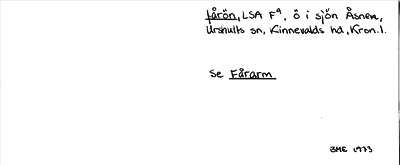 Fårön, LSA F9, ö i sjön Åsnen,
Urshults sn, Kinnevalds hd, Kron. l.
Se Fårarm
BME 1973